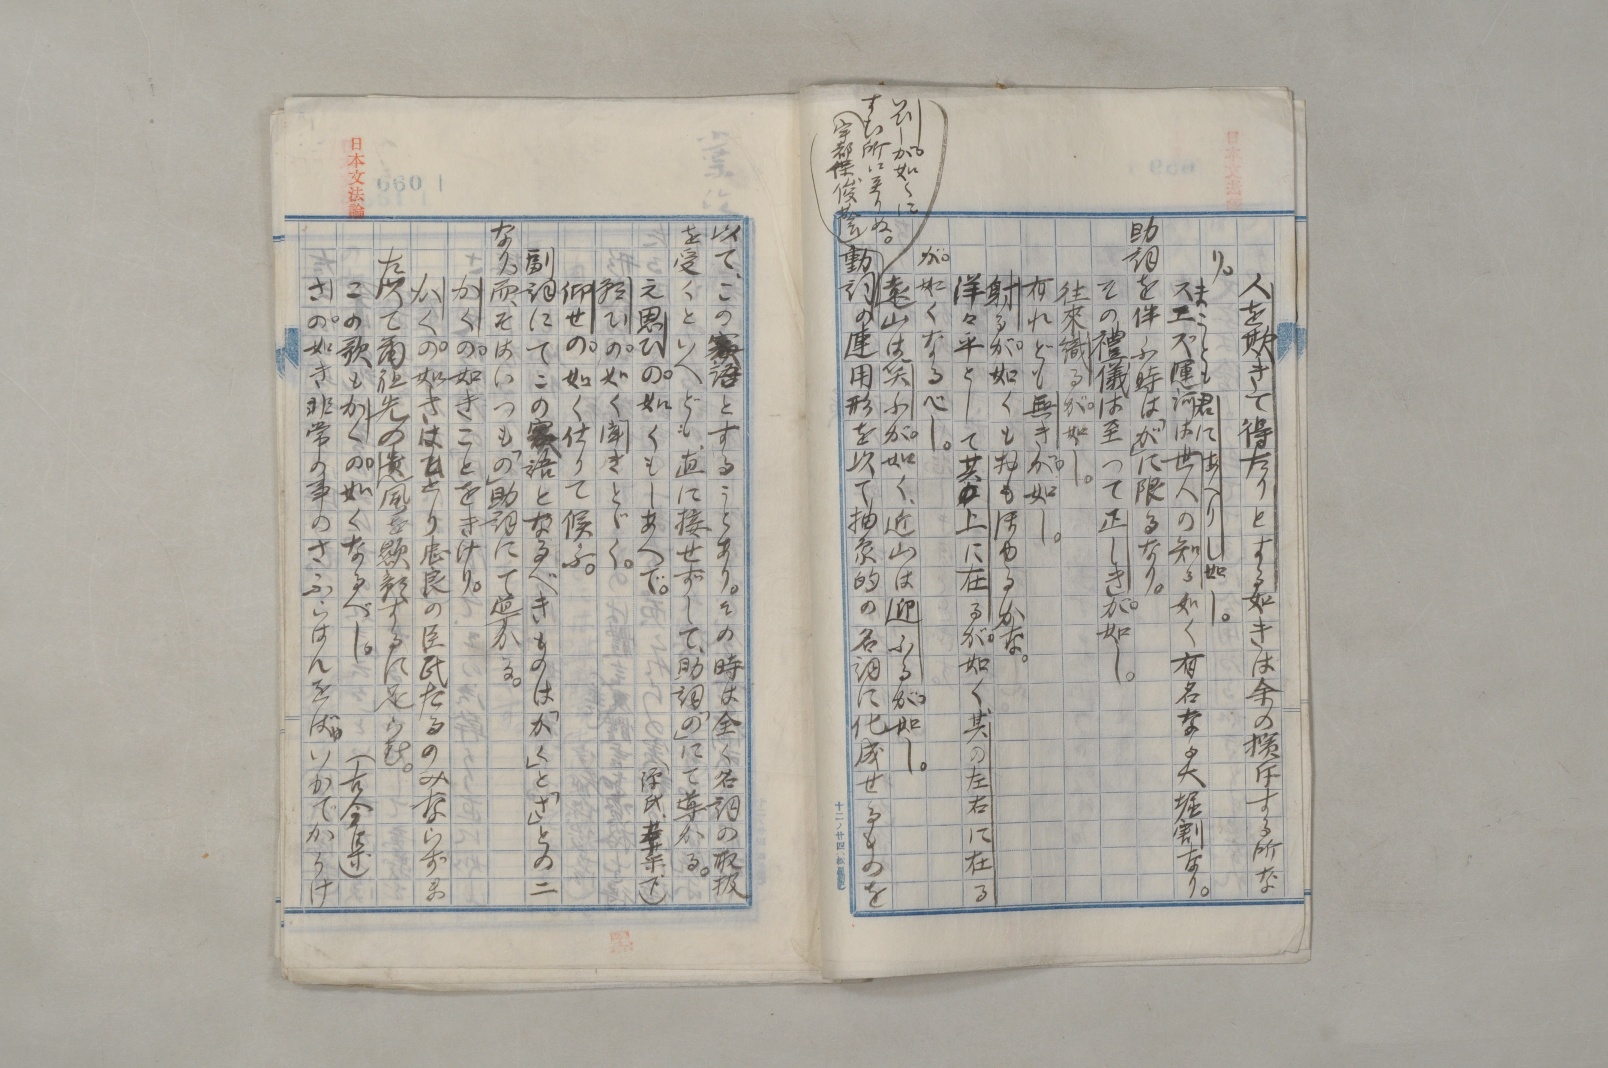 人を欺きて得たりとする如きは余の擯斥する所な
り。
まことも君にあへりし如し。
スエズ運河は世人の知る如く有名なる大堀割なり。
助詞を伴ふ時は「が」に限るなり。
その禮儀は至つて正しきが如し。
往來織るが如し。
有れども無きが如し。
射るが如くも
洋々乎として其の上に在るが如く其の左右に在る
が如くなるべし。
遠山は笑ふが如く、近山は迎ふるが如し。
が如くに
すむ所に至りぬ。
(宇都保俊蔭)
動詞の連用形を以て抽象的の名詞に化成せるものを
十二ノ廿四
日本文法論
660
以て、この賓語とすることあり。その時は全く名詞の取扱
を受くといへども、直に接せずして、助詞「の」にて導かる。
え思ひの如くもしあへで。(源氏、若菜下)
願ひの如く聞きとゞく。
仰せの如く仕りて候ふ。
副詞にてこの賓語となるべきものは「かく」と「さ」との二
なり。而、そはいつも「の」助詞にて導かる。
かくの如きことをきけり。
かくの如きは
忠良の臣民たるのみならず又
以て爾祖先の遺風を顯彰するに足らむ。
この歌もかくの如くなるべし。(古今集)
さの如き非常の事のさふらはんをばいかでかうけ
日本文法論